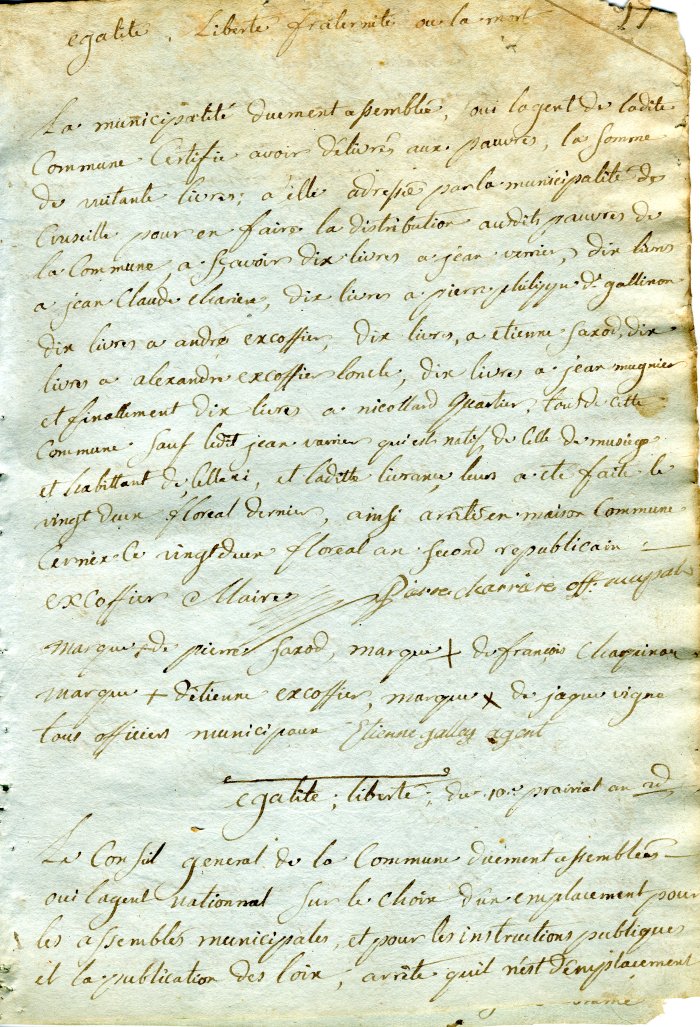 17
egalité, Liberté fraternité ou la mort
La municipalité duement assemblée, oui lagent de ladite
Commune Certifie avoir délivrés aux pauvres, la somme
de uitante livres; a elle adressée par la municipalité de
Cruseille pour en faire la distribution audits pauvres de
la Commune, a sçavoir dix livres a jean varnier, dix livres
a jean Claude charière, dix livres a pierre philippe de gallinon
dix livres a andré excoffier, dix livres, a etienne saxod, dix
livres a alexandre excoffier loncle, dix livres a jean mugnier
et finallement dix livres a nicollard quartier, tous de cette
Commune sauf ledit jean varnier qui est natif de Cille de musiege
et habittant de, et laditte livrance leurs a eté faite le
vingt deux floreal dernier, ainsi arrêté en maison Commune
Cernex le vingtdeux floreal an second republicain
excoffier Maire Pierre charrière off. municipal
marque + de pierre saxod, marque + de françois Chapinau
marque + détienne excoffier, marque x de jaque vigne
tous officiers municipaux Etienne gallay agent
egalite; liberté; du 10e prairial an 2d
Le Conseil general de la Commune duement assemblés
oui lagent nationnal sur le choix dun emplacement pour
les assemblés municipales, et pour les instructions publiques
et la publication des loix, arrête quil nest demplacement